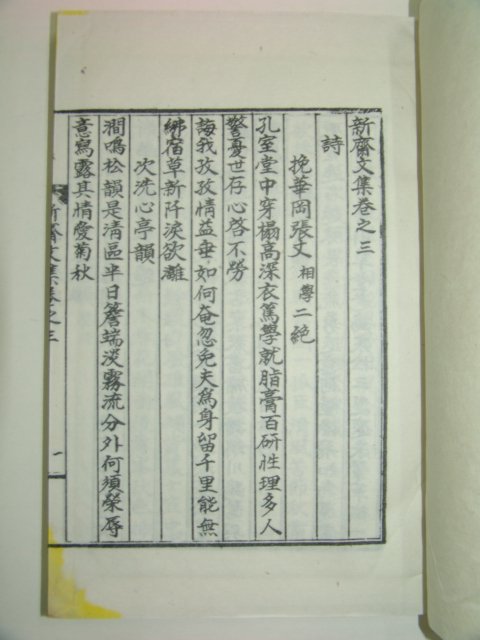 新齋文集卷之三
詩
挽華岡張丈相學二絕
孔室堂中穿榻高深衣篤學就脂膏百研性理多人
警憂世存心啓不勞
誨我孜孜情益垂如何奄忽免夫爲身留千里能無
紼宿草新阡淚欲離
次洗心亭韻
澗鳴松韻是淸區半日簷端淡霧流分外何須榮辱
意寫露其情愛菊秋
新齋文集卷之三
一